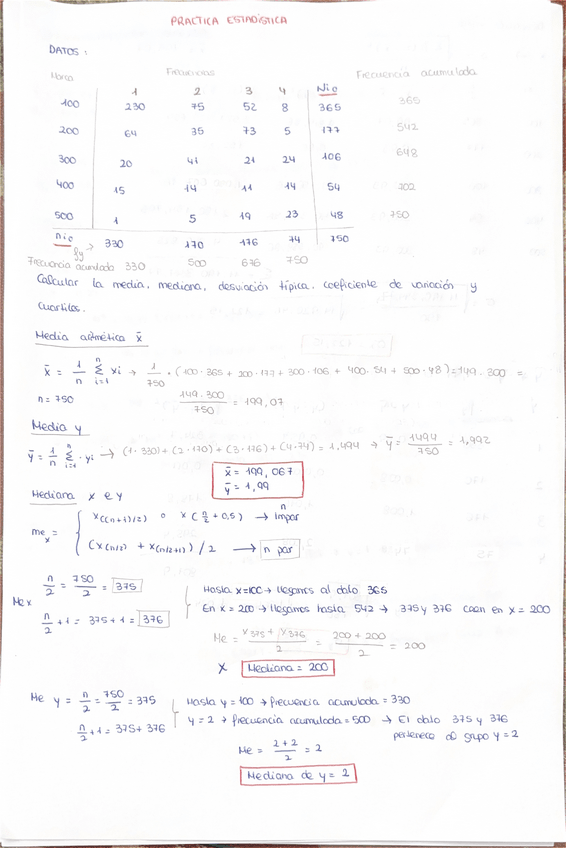 PRACTICA ESTADÍSTICA
DATOS:
Horca Frecuencias Frecuencia acumulada
1 2 3 4 Nic
100 230 75 52 8 365 365
200 64 35 73 5 177 542
300 20 41 21 24 106 648
400 15 14 11 14 54 702
500 1 5 19 23 48 750
nic → 330 170 176 74 750
Frecuencia acumulada 330 500 676 750
Calcular la media, mediana, desviación típica, coeficiente de variación y
cuartiles.
Media aritmética x̄
x̄ = 1/n Σ(i=1, n) xi → 1/750 · (100·365 + 200·177 + 300·106 + 400·54 + 500·48) = 149.300 =
n = 750 149.300/750 = 199,07
Media y
ȳ = 1/n Σ(i=1, n) · yi → (1·330) + (2·170) + (3·176) + (4·74) = 1,494 → ȳ = 1494/750 = 1,992
x̄ = 199,067
ȳ = 1,99
Mediana x e y
me x = { x((n+1)/2) o x(n/2 + 0,5) → n impar
(x(n/2) + x(n/2+1))/2 → n par
Me x n/2 = 750/2 = 375 Hasta x=100 → llegamos al dato 365
n/2 + 1 = 375 + 1 = 376 En x = 200 → llegamos hasta 542 → 375 y 376 caen en x = 200
Me = x375 + x376/2 = 200 + 200/2 = 200
x Mediana = 200
Me y = n/2 = 750/2 = 375 Hasta y = 100 → frecuencia acumulada = 330
n/2 + 1 = 375 + 376 y = 2 → frecuencia acumulada = 500 → El dato 375 y 376
pertenece al grupo y = 2
Me = 2 + 2/2 = 2
Mediana de y = 2